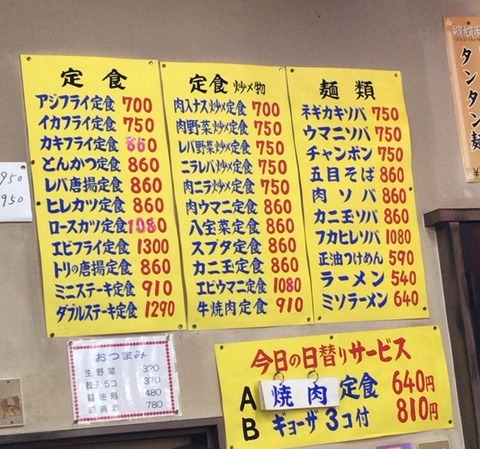 定食
アジフライ定食 700
イカフライ定食 750
カキフライ定食 860
とんかつ定食 860
レバ唐揚定食 860
ヒレカツ定食 860
ロースカツ定食 1080
エビフライ定食 1300
トリの唐揚定食 860
ミニステーキ定食 910
ダブルステーキ定食 1290
定食 炒め物
肉入ナス炒め定食 700
肉野菜炒め定食 750
レバ野菜炒め定食 750
ニラレバ炒め定食 750
肉ニラ炒め定食 750
肉ウマニ定食 860
八宝菜定食 860
スブタ定食 860
カニ玉定食 860
エビウマニ定食 1080
牛焼肉定食 910
麺類
ネギカキソバ 750
ウマニソバ 750
チャンポン 750
五目そば 860
肉ソバ 860
カニ玉ソバ 860
フカヒレソバ 1080
正油つけめん 590
ラーメン 540
ミソラーメン 640
タンタン麺
950
950
おつまみ
生野菜 320
餃子5コ 370
480
780
今日の日替りサービス
A 焼肉定食 640円
B ギョーザ3コ付 810円